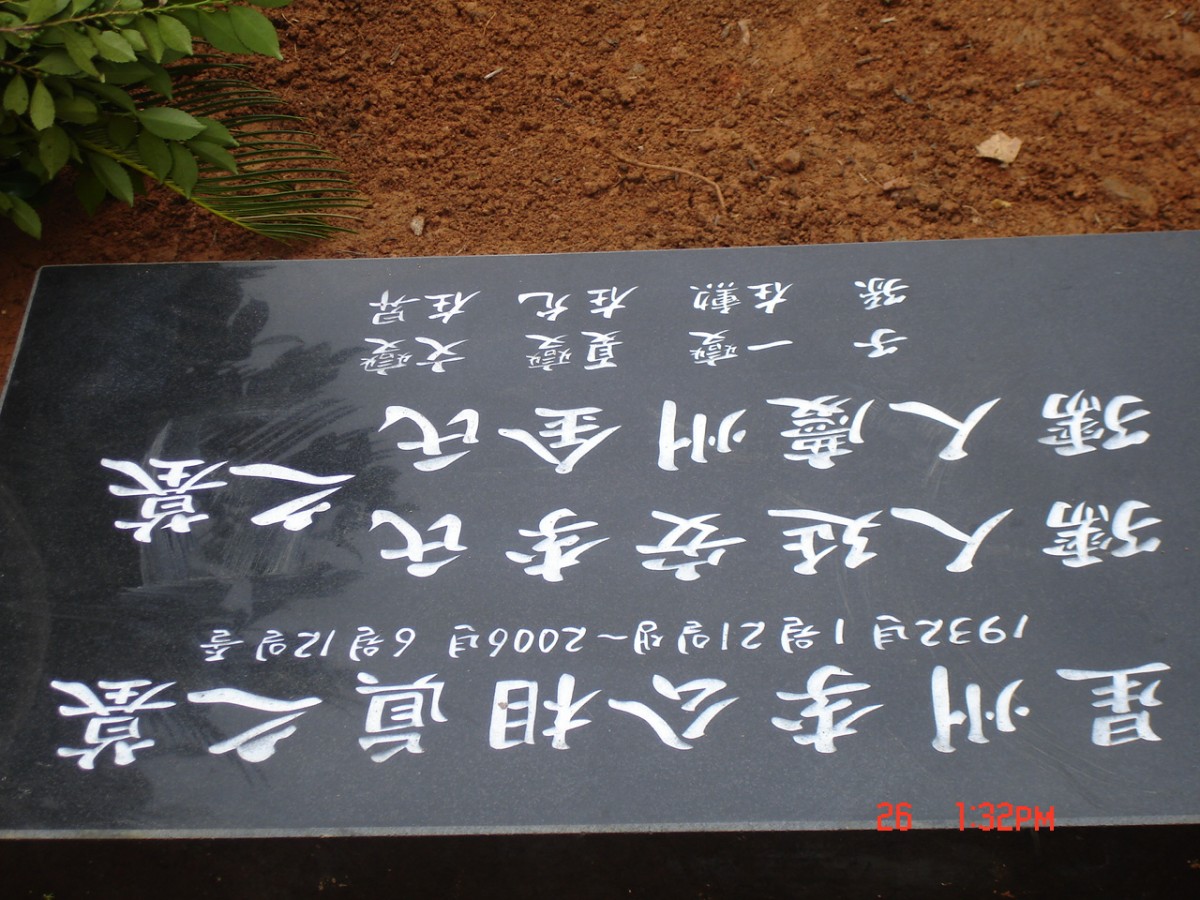 星州李公相眞之墓
1932년 1월21일생~2006년 6월12일졸
孺人延安李氏
孺人慶州金氏
之墓
子 一燮 夏燮 文燮
孫 在勳 在允 在昇
26 1:32PM